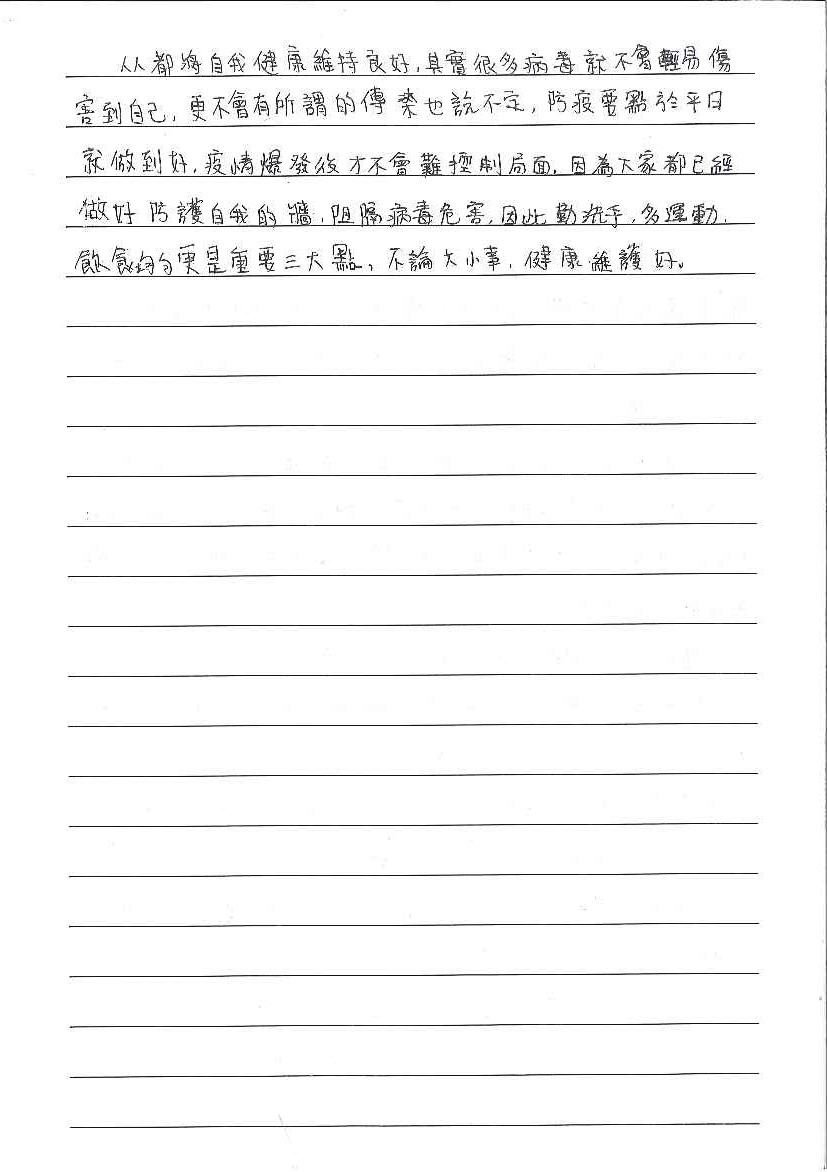 人人都將自我健康維持良好，其實很多病毒就不會輕易傷
害到自己，更不會有所謂的傳染也說不定，防疫要點於平日
就做到好，疫情爆發後才不會難控制局面，因為大家都已經
做好防護自我的牆，阻隔病毒危害，因此勤洗手，多運動，
飲食均勻更是重要三大點，不論大小事，健康維護好。